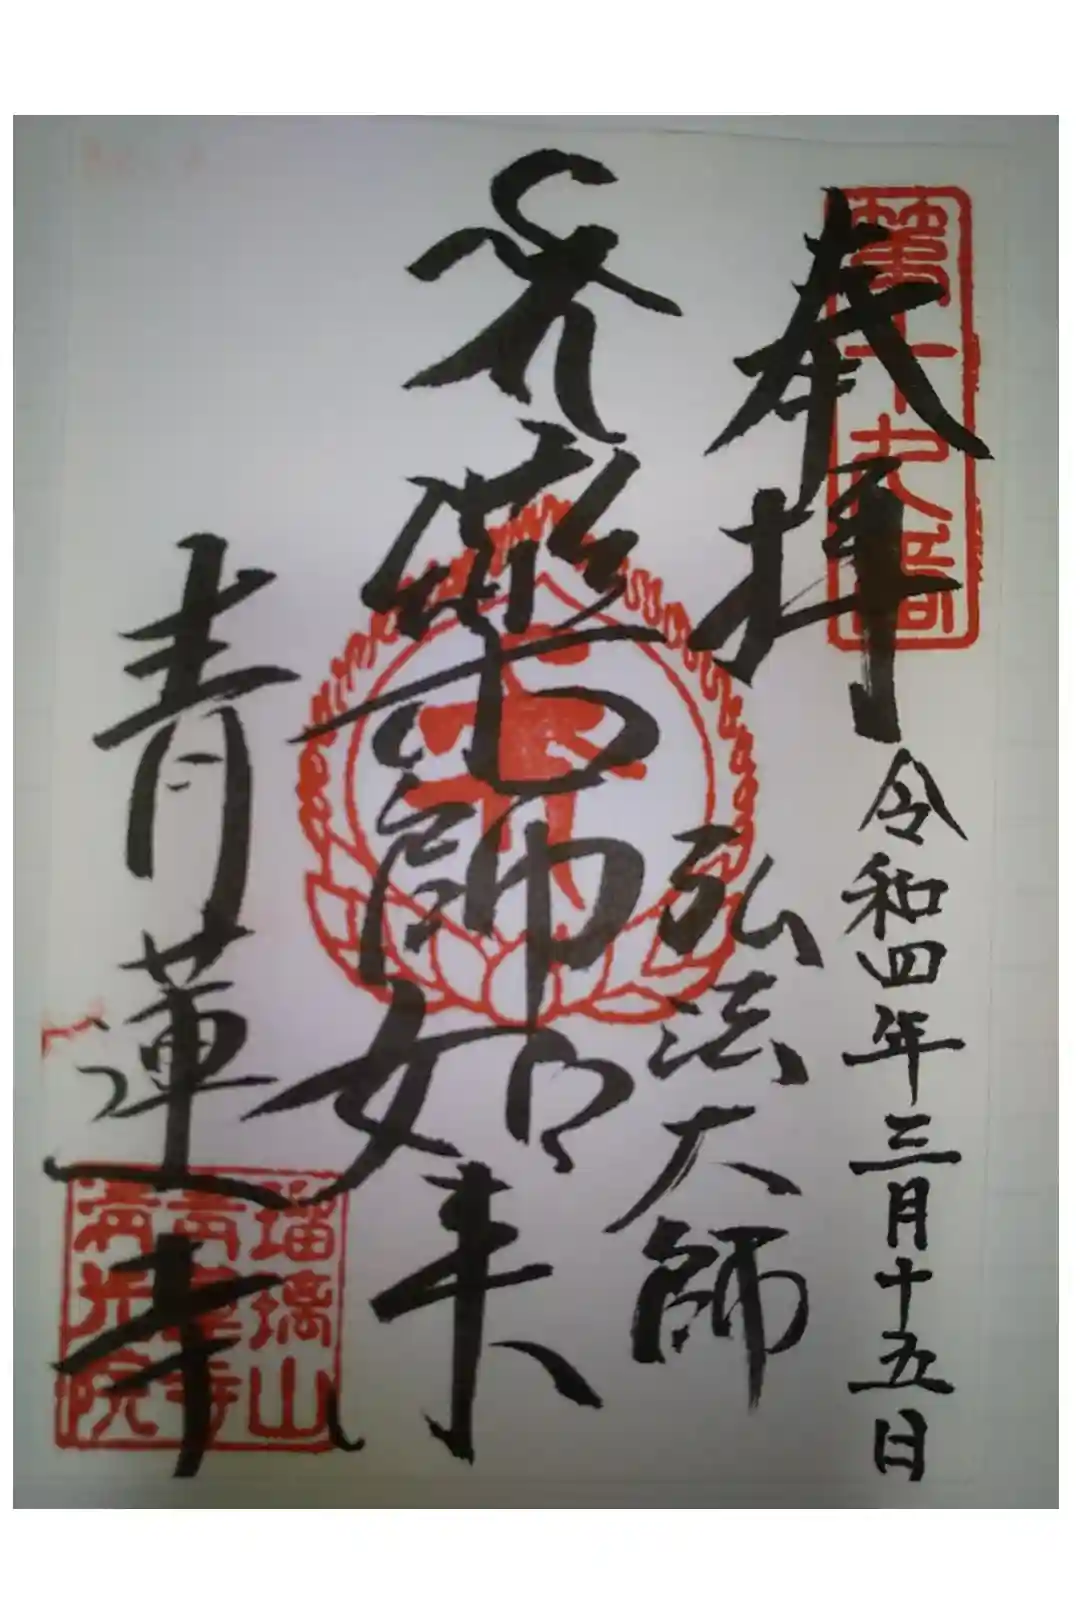 奉拝
令和四年三月十五日
弘法大師
薬師如来
青蓮寺
第十九番
瑠璃山
青蓮寺
満光院